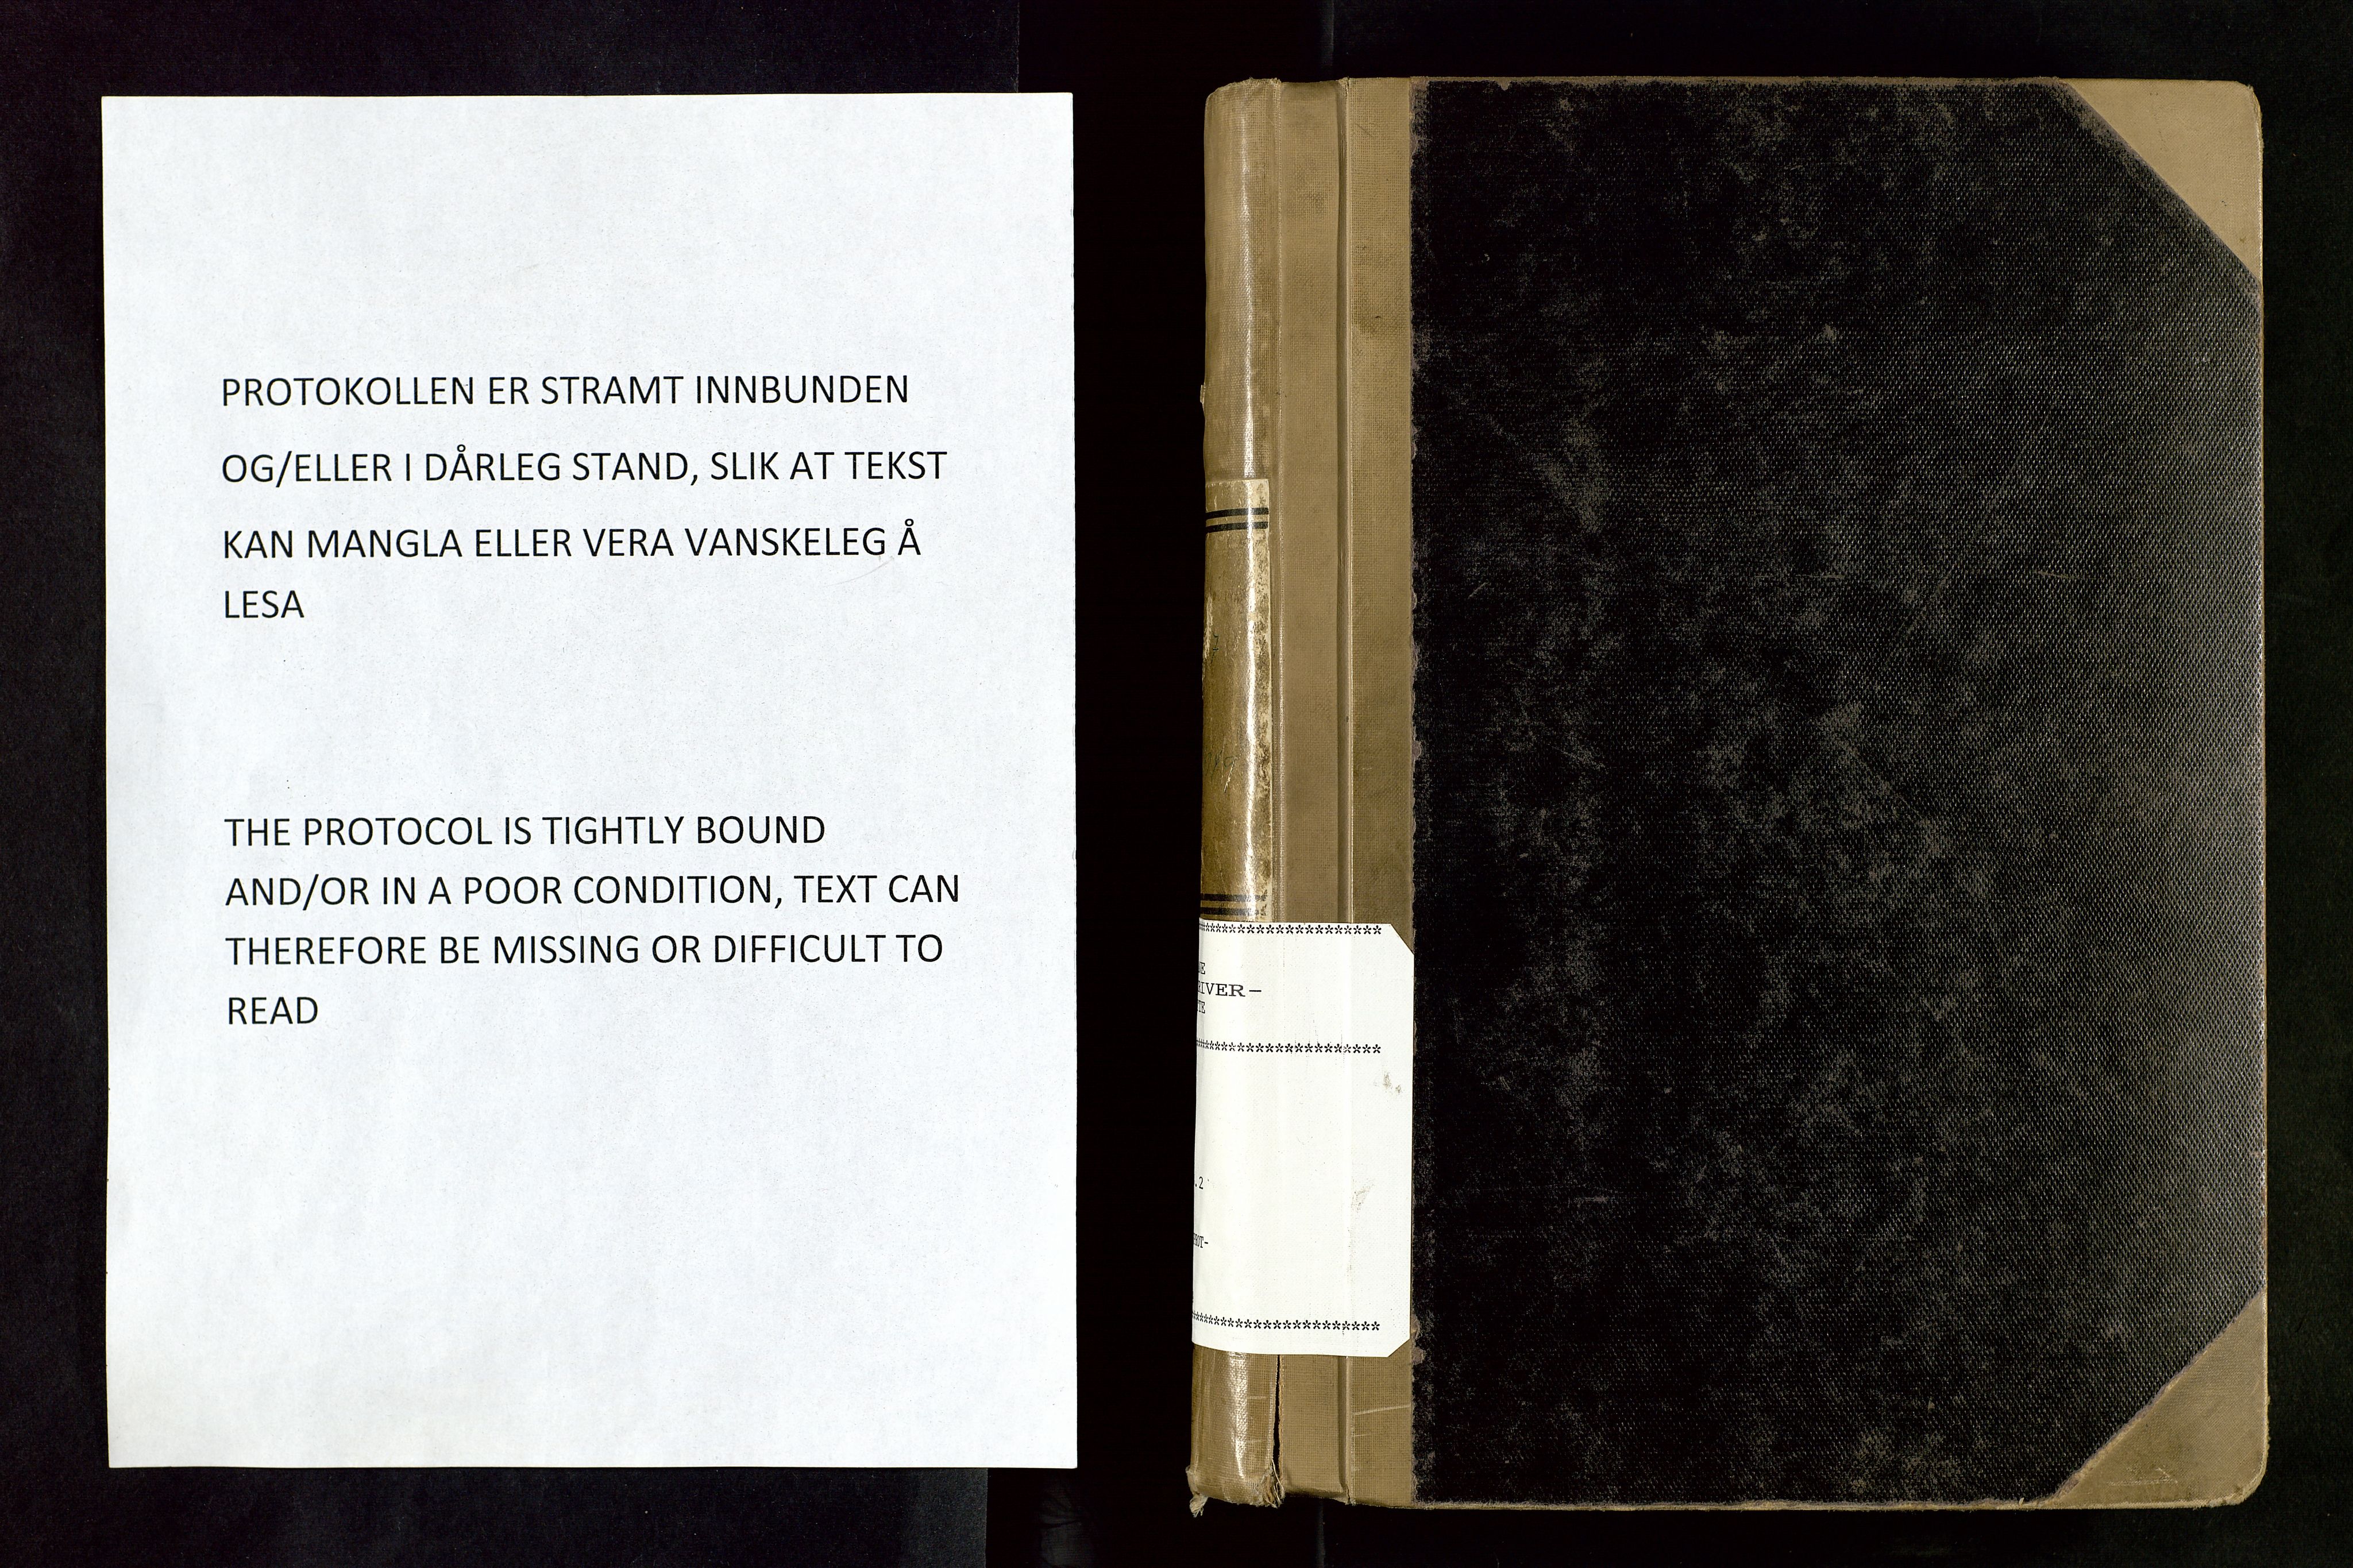 PROTOKOLLEN ER STRAMT INNBUNDEN
OG/ELLER I DÅRLEG STAND, SLIK AT TEKST
KAN MANGLA ELLER VERA VANSKELEG Å
LESA
THE PROTOCOL IS TIGHTLY BOUND
AND/OR IN A POOR CONDITION, TEXT CAN
THEREFORE BE MISSING OR DIFFICULT TO
READ
IVER-
.2